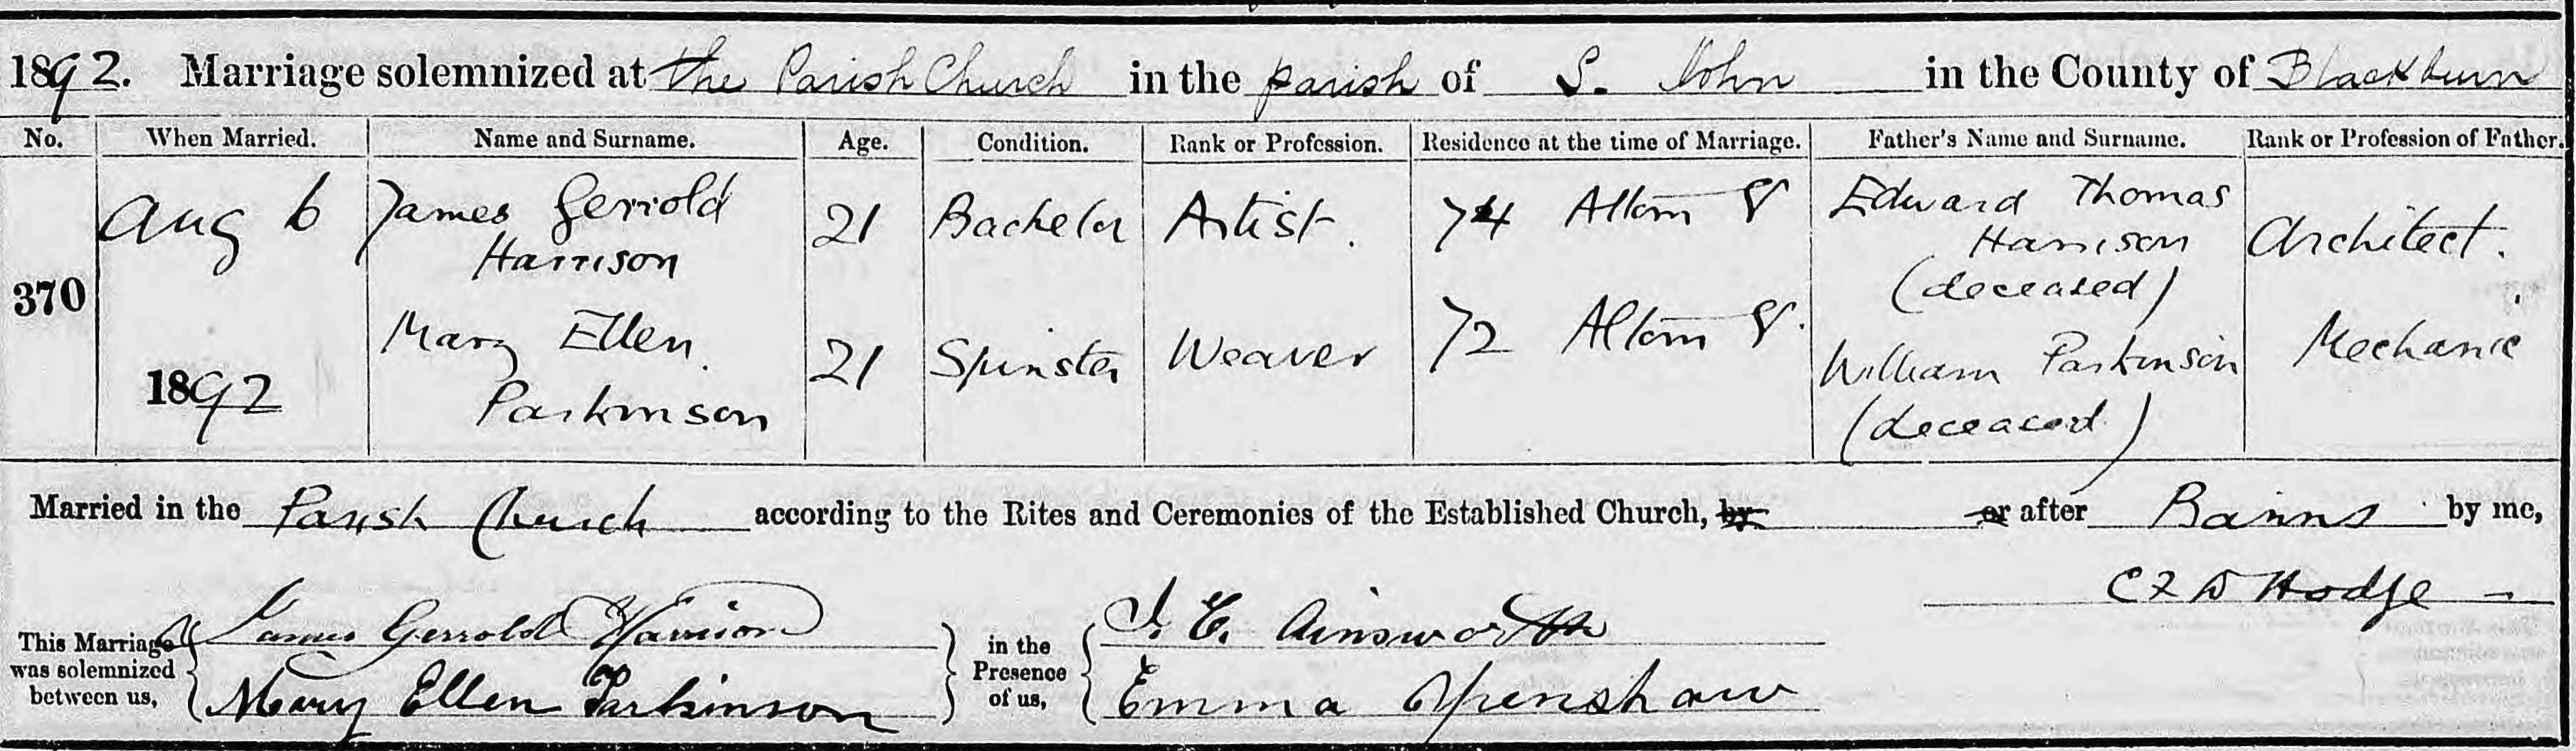 1892. Marriage solemnized at the Parish Church in the parish of S. John in the County of Blackburn
No. When Married. Name and Surname. Age. Condition. Rank or Profession. Residence at the time of Marriage. Father's Name and Surname. Rank or Profession of Father.
370
Aug 6
1892
James Gerrold
Harrison
21 Bachelor Artist. 74 Altom St
Edward Thomas
Harrison
(deceased)
Architect.
Mary Ellen
Parkinson
21 Spinster Weaver 72 Altom St.
William Parkinson
(deceased)
Mechanic
Married in the Parish Church according to the Rites and Ceremonies of the Established Church, by or after Banns by me,
Hodge
This Marriage
was solemnized
between us,
James Gerrold Harrison
Mary Ellen Parkinson
in the
Presence
of us,
Ainsworth
Emma Openshaw